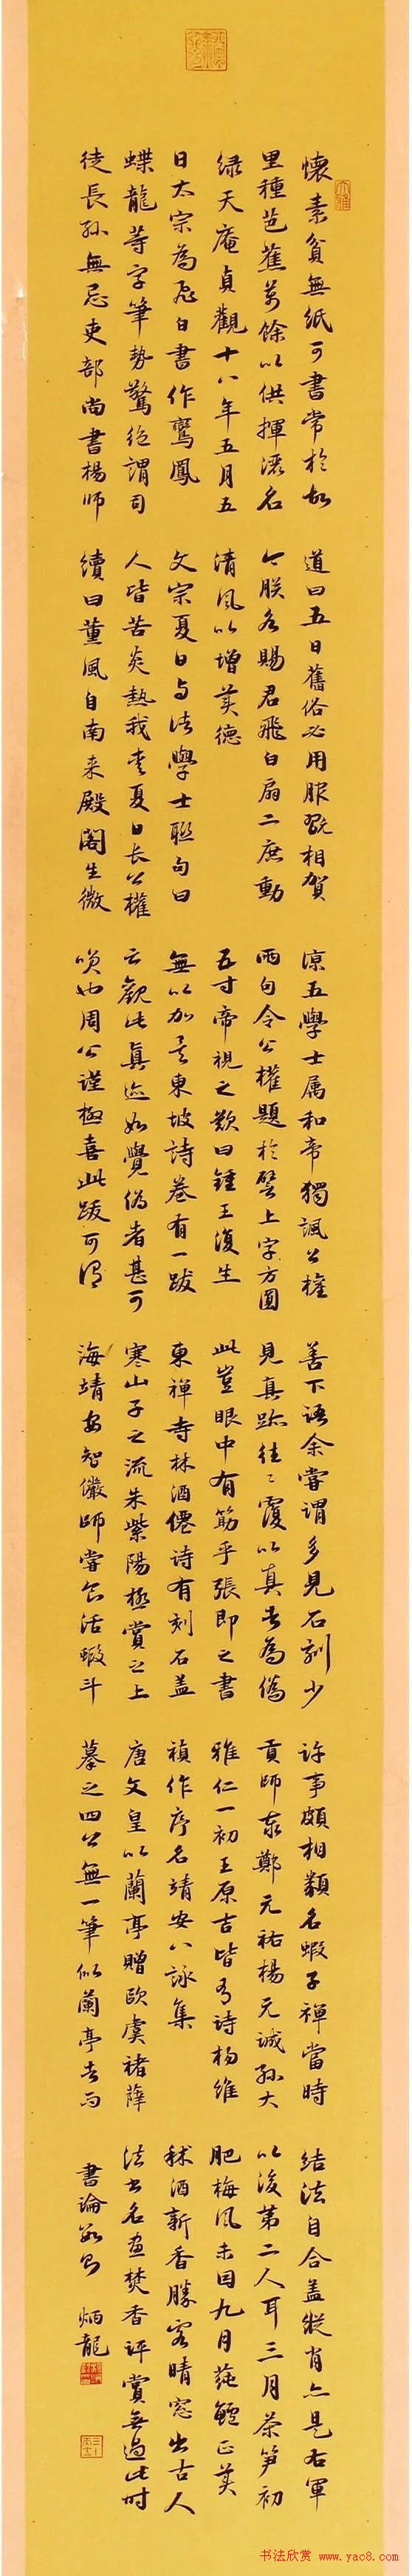 懷素貧無紙可書常於故
里種芭蕉萬餘以供揮灑名
绿天庵貞觀十八年五月五
日太宗為飛白書作鸞鳳
蝶龍等字筆勢驚絶謂司
徒長孫無忌吏部尚書楊師
道曰五日舊俗必用服翫相賀
今朕各賜君飛白扇二庶動
清風以增美德
文宗夏日与諸學士聯句曰
人皆苦炎熱我愛夏日長公權
續曰薰風自南来殿閣生微
涼五學士属和帝獨諷公權
兩句令公權題於壁上字方圓
五寸帝視之歎曰鍾王復生
無以加焉東坡詩卷有一跋
云觀此真迹如覺偽者甚可
笑也周公謹極喜此跋可謂
善下語余嘗謂多見石刻少
見真跡往〻覆以真者為偽
此豈眼中有筋乎張即之書
東禅寺林酒僊詩有刻石盖
寒山子之流朱紫陽極賞之上
海靖安智儼師嘗食活蝦斗
許事頗相類名蝦子禅當時
貢師泰鄭元祐楊元誠孫大
雅仁一初王原吉皆有詩杨维
禎作序名靖安八詠集
唐文皇以蘭亭贈歐虞褚薛
摹之四公無一筆似蘭亭者而
結法自合盖縱肖亦是右軍
以後第二人耳三月茶笋初
肥梅风未困九月蓴鱸正美
秫酒新香勝客晴窓出古人
法书名画焚香评賞無過此时
書論数則 炳龍
书法欣赏 www.yac8.com